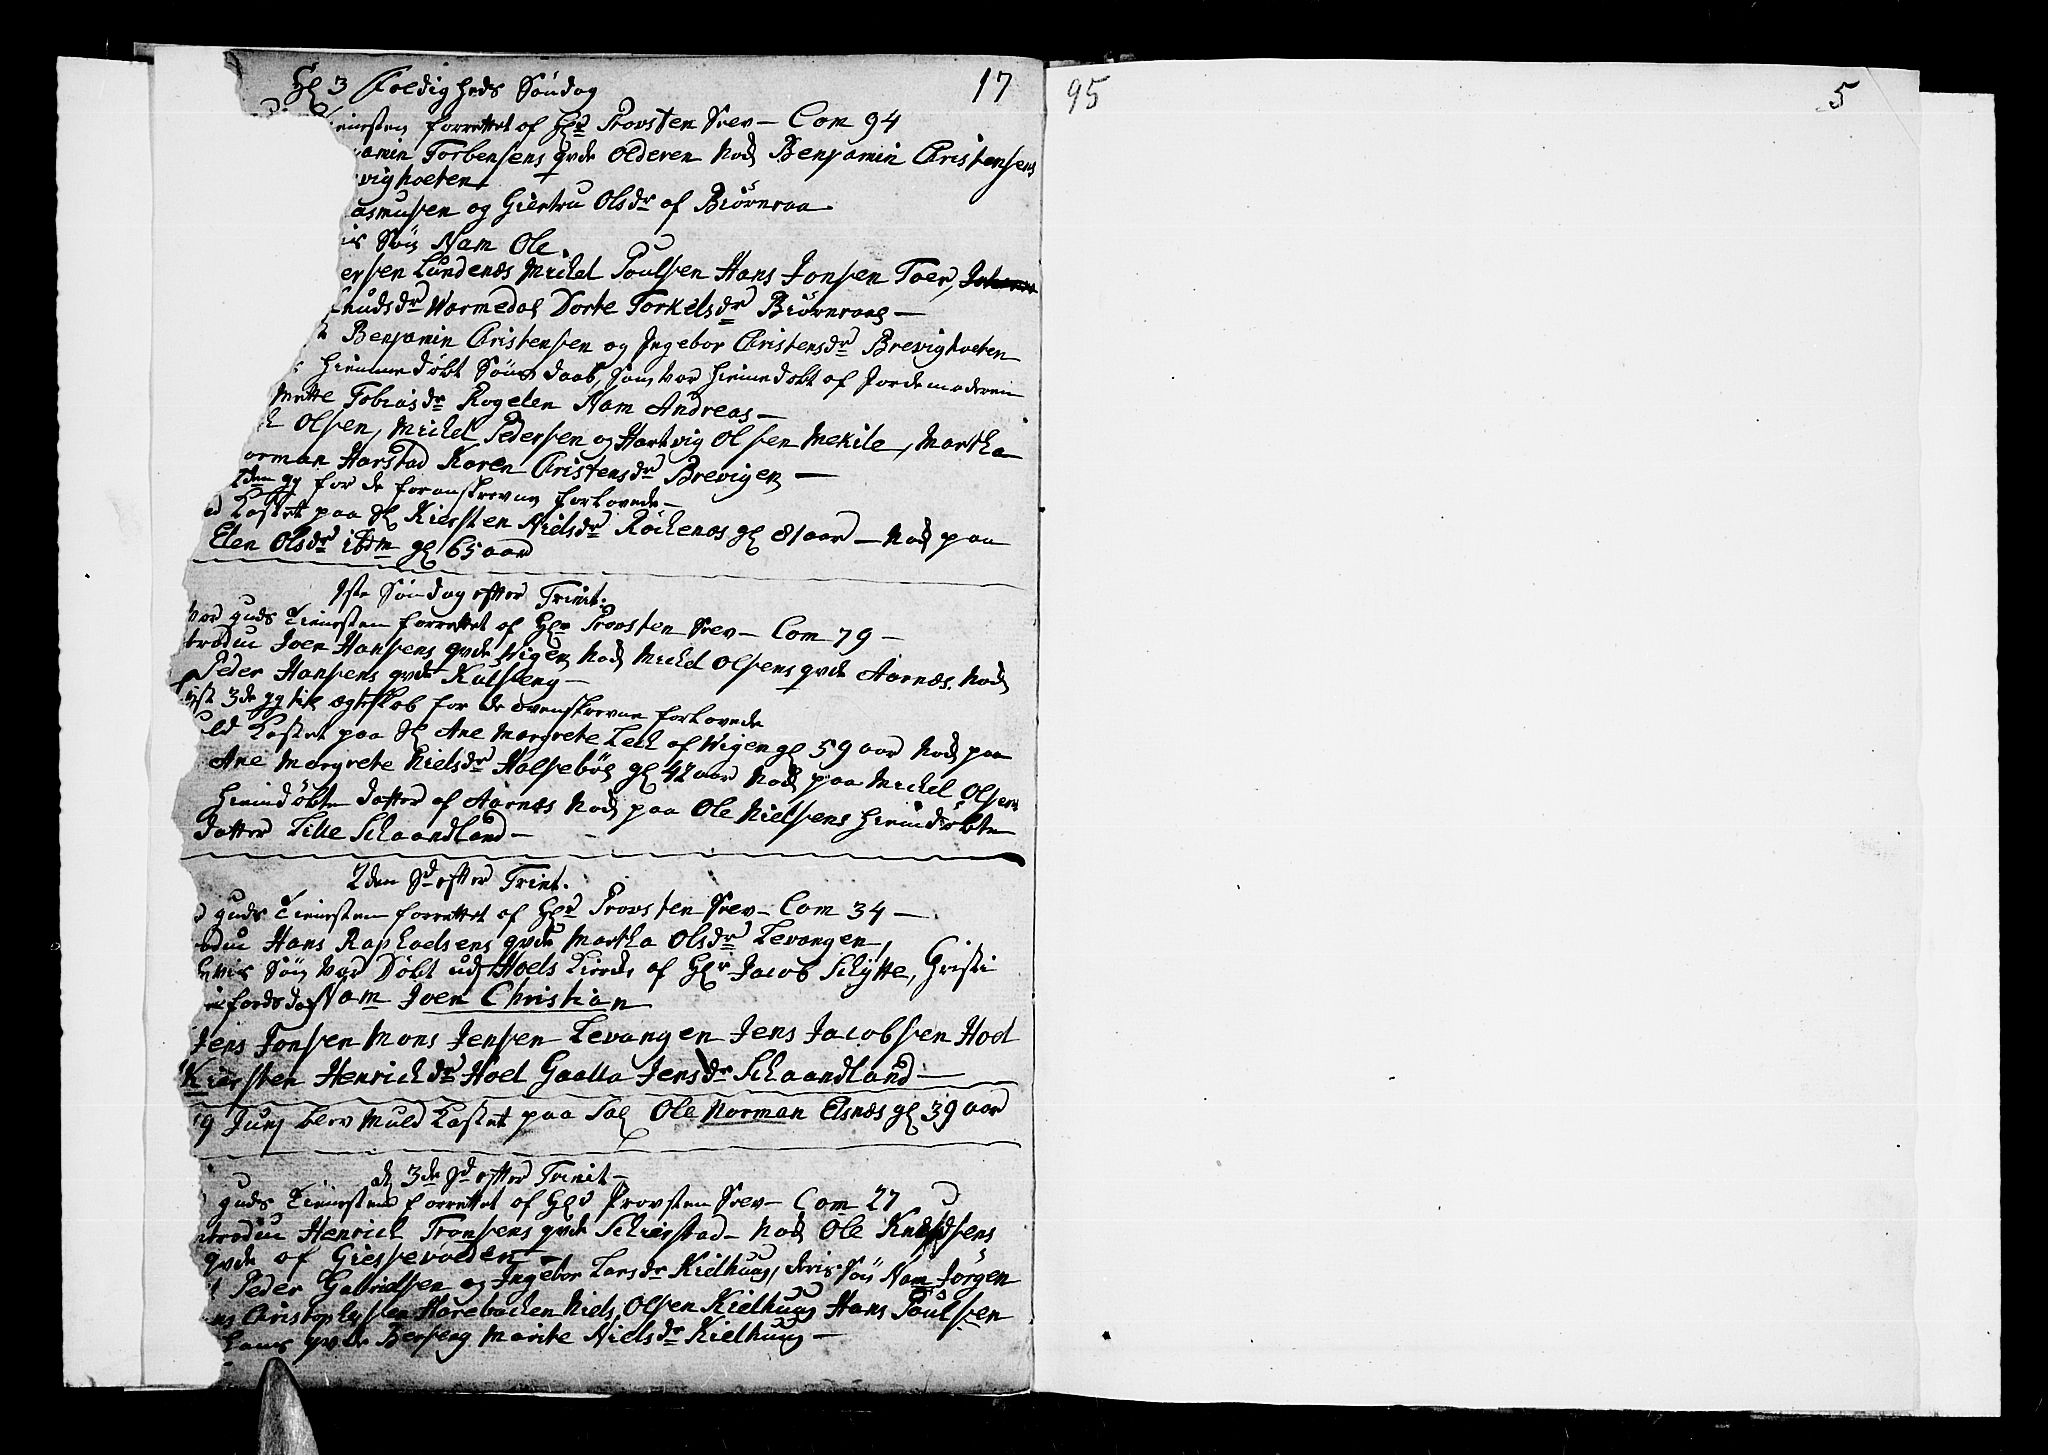 Hl 3 foldigheds Søndag 17
Tienesten forrettet af Hr Provsten Srev — Com 94
jamin Torbensens qvde Olderen Nok Benjamin Christensens
vighoeten
asmussen og Giertru Olsdr af Biørnraa
is Søn Nam Ole
ersen Lundenæs Mickel Poulsen Hans Jonsen Toer,
nudsdr Wormedal Dorte Torkelsdr Biørnraae —
t Benjamin Christensen og Ingebor Christensdr Brevighoeten
s hiemmedøbt Søns daab, som var hiemedøbt af Jordemoderen
Mette Tobiasdr Rogelen Nam Andreas —
k Olsen, Mickel Pedersen og Hartvig Olsen Mekile, Martha
orman Harstad Karen Christensdr Brevigen —
2den gg for de foranskrevne forlovede —
d Kastet paa Sl Kiersten Nielsdr Røckenes gl 81 aar — Nok paa
Elen Olsdr ibdm gl 65 aar
1ste Søndag efter Trinit.
Var guds Tienesten forrettet af Hr Provsten Srev — Com 79 —
troduc Joen Hansens qvde Wigen Nok Mickel Olsens qvde Aarnæs. Nok
Peder Hansens qvde Kulseng —
yst 3de gg til ægteskab for de ovenskrevne forlovede
uld Kastet paa Sl Ane Margrete Leck af Wigen gl 59 aar Nok paa
Ane Margrete Nielsdr Halsebøe gl 42 aar Nok paa Mickel Olsens
hiemdøbte datter af Aarnæs Nok paa Ole Nielsens hiemdøbte
datter Lille Schaandland —
2den Sd efter Trinit.
guds Tienesten forrettet af Hr Provsten Srev — Com 34 —
oduc Hans Raphaelsens qvde Martha Olsdr Levangen,
hvis Søn var døbt udj Hoels Kircke af Hr Jacob Schytte, Christi
fards dag Nam Joen Christian
Jens Jonsen Mons Jensen Levangen Jens Jacobsen Hoel
Kiersten Henrichdr Hoel Gaalla Jensdr Schaandland —
9 Junj blev Muld Kastet paa Sal Ole Norman Elsnæs gl 39 aar
d. 3de Sd efter Trinit —
guds Tienesten forrettet af Hr Provsten Srev — Com 27
ntroduc Henrick Tronsens qvde Schierstad — Nok Ole Knudsens
qvde af Giessevolden —
t Peder Gabrielsen og Ingebor Larsdr Kielhuug, deris Søn Nam Jørgen
ns Christophersen Harebacken Niels Olsen Kielhuug Hans Poulsen
hans qvde Berseng Marite Nielsdr Kielhuug —
95 5